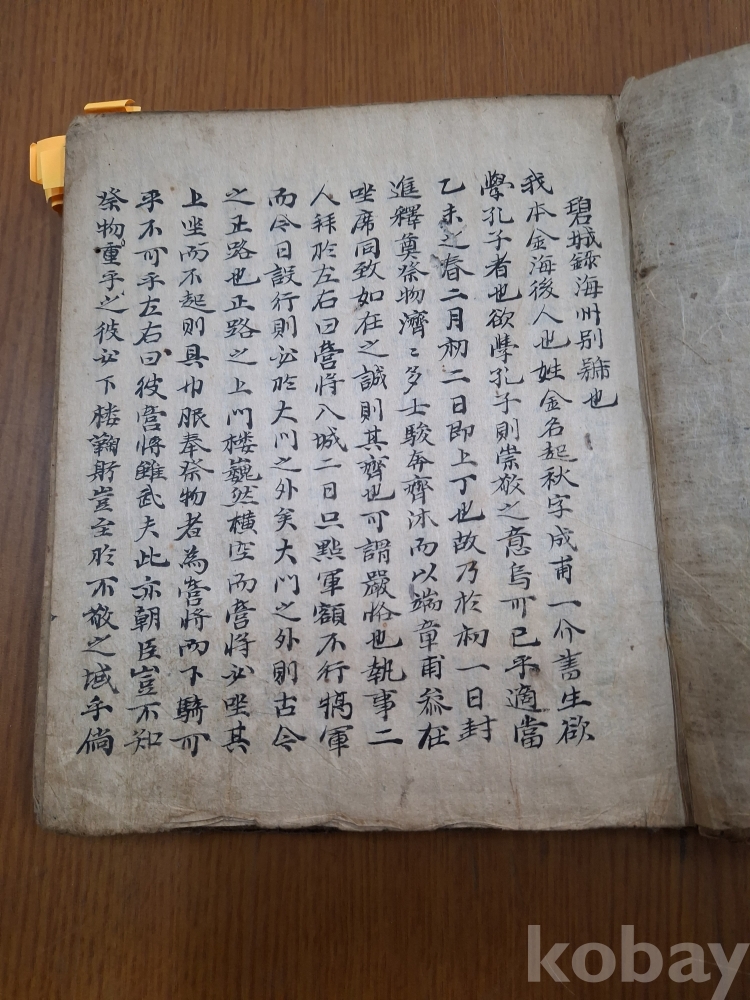 碧城錄海州别號也
我本金海後人也姓金名起秋字成甫一介書生欲
學孔子者也欲學孔子則崇敬之意烏可已乎適當
乙未之春二月初二日即上丁也故乃於初一日封
進釋奠祭物濟〻多士駿奔齊沐而以端章甫叅在
坐席同致如在之誠則其齊也可謂嚴恪也執事二
人拜於左右曰營將入城二日只點軍額不行犒軍
而今日設行則必於大門之外矣大門之外則古今
之正路也正路之上門樓巍然橫空而營將必坐其
上坐而不起則具巾服奉祭物者為營將而下騎可
乎不可乎左右曰彼營將雖武夫此亦朝臣豈不知
祭物重乎之彼必下樓鞠躬豈至於不敬之域乎倘
kobay